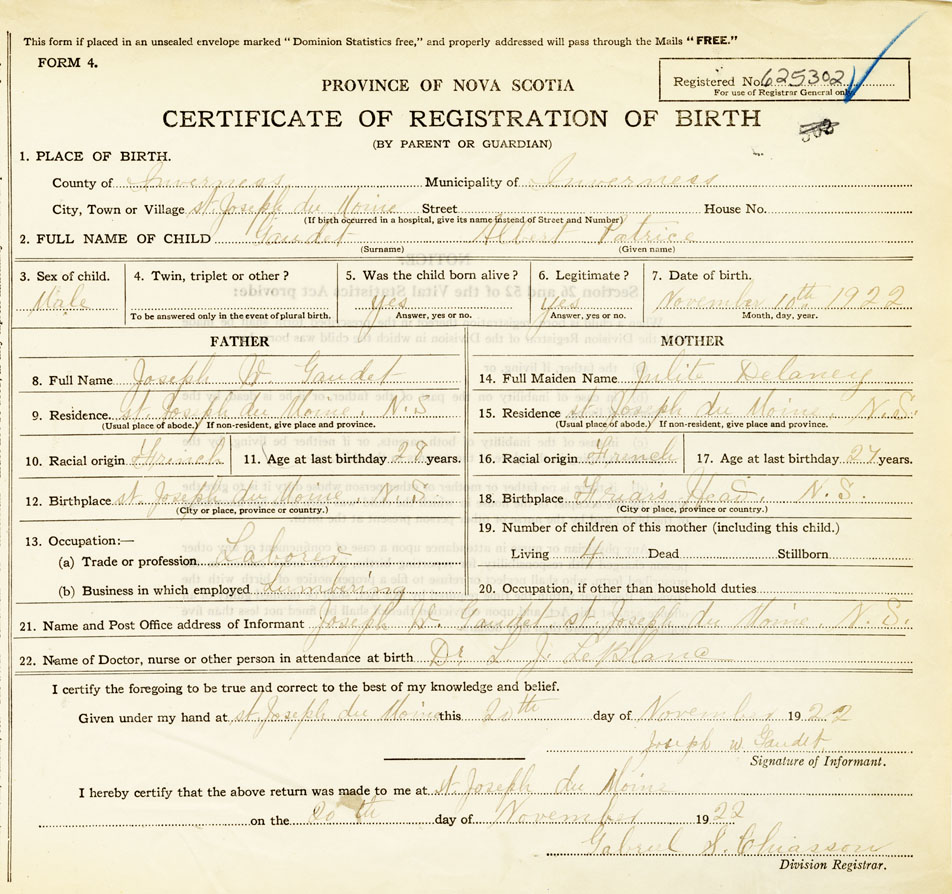 This form if placed in an unsealed envelope marked "Dominion Statistics free," and properly addressed will pass through the Mails "FREE."
FORM 4.
Registered No. 625302
For use of Registrar General only
PROVINCE OF NOVA SCOTIA
CERTIFICATE OF REGISTRATION OF BIRTH
(BY PARENT OR GUARDIAN)
1. PLACE OF BIRTH.
County of Inverness Municipality of Inverness
City, Town or Village St. Joseph du Moine Street House No.
(If birth occurred in a hospital, give its name instead of Street and Number)
2. FULL NAME OF CHILD Gaudet Albert Patrice
(Surname) (Given name)
3. Sex of child. 4. Twin, triplet or other? 5. Was the child born alive? 6. Legitimate? 7. Date of birth.
Male yes yes November 10th 1922
To be answered only in the event of plural birth. Answer, yes or no. Answer, yes or no. Month, day, year.
FATHER MOTHER
8. Full Name Joseph W. Gaudet 14. Full Maiden Name Julite Delaney
9. Residence St Joseph du Moine, N.S 15. Residence St Joseph du Moine N.S.
(Usual place of abode.) If non-resident, give place and province. (Usual place of abode.) If non-resident, give place and province.
10. Racial origin French 11. Age at last birthday 28 years. 16. Racial origin French 17. Age at last birthday 27 years.
12. Birthplace St Joseph du Moine, N.S. 18. Birthplace Friar's Head, N.S.
(City or place, province or country.) (City or place, province or country.)
19. Number of children of this mother (including this child.)
13. Occupation:—
Living 4 Dead Stillborn
(a) Trade or profession Laborer
(b) Business in which employed Lumbering 20. Occupation, if other than household duties
21. Name and Post Office address of Informant Joseph W. Gaudet St Joseph du Moine, N.S.
22. Name of Doctor, nurse or other person in attendance at birth Dr L J LeBlanc
I certify the foregoing to be true and correct to the best of my knowledge and belief.
Given under my hand at St Joseph du Moine this 20th day of November 1922
Joseph W Gaudet
Signature of Informant.
I hereby certify that the above return was made to me at St Joseph du Moine
on the 20th day of November 1922
Gabriel S. Chiasson
Division Registrar.